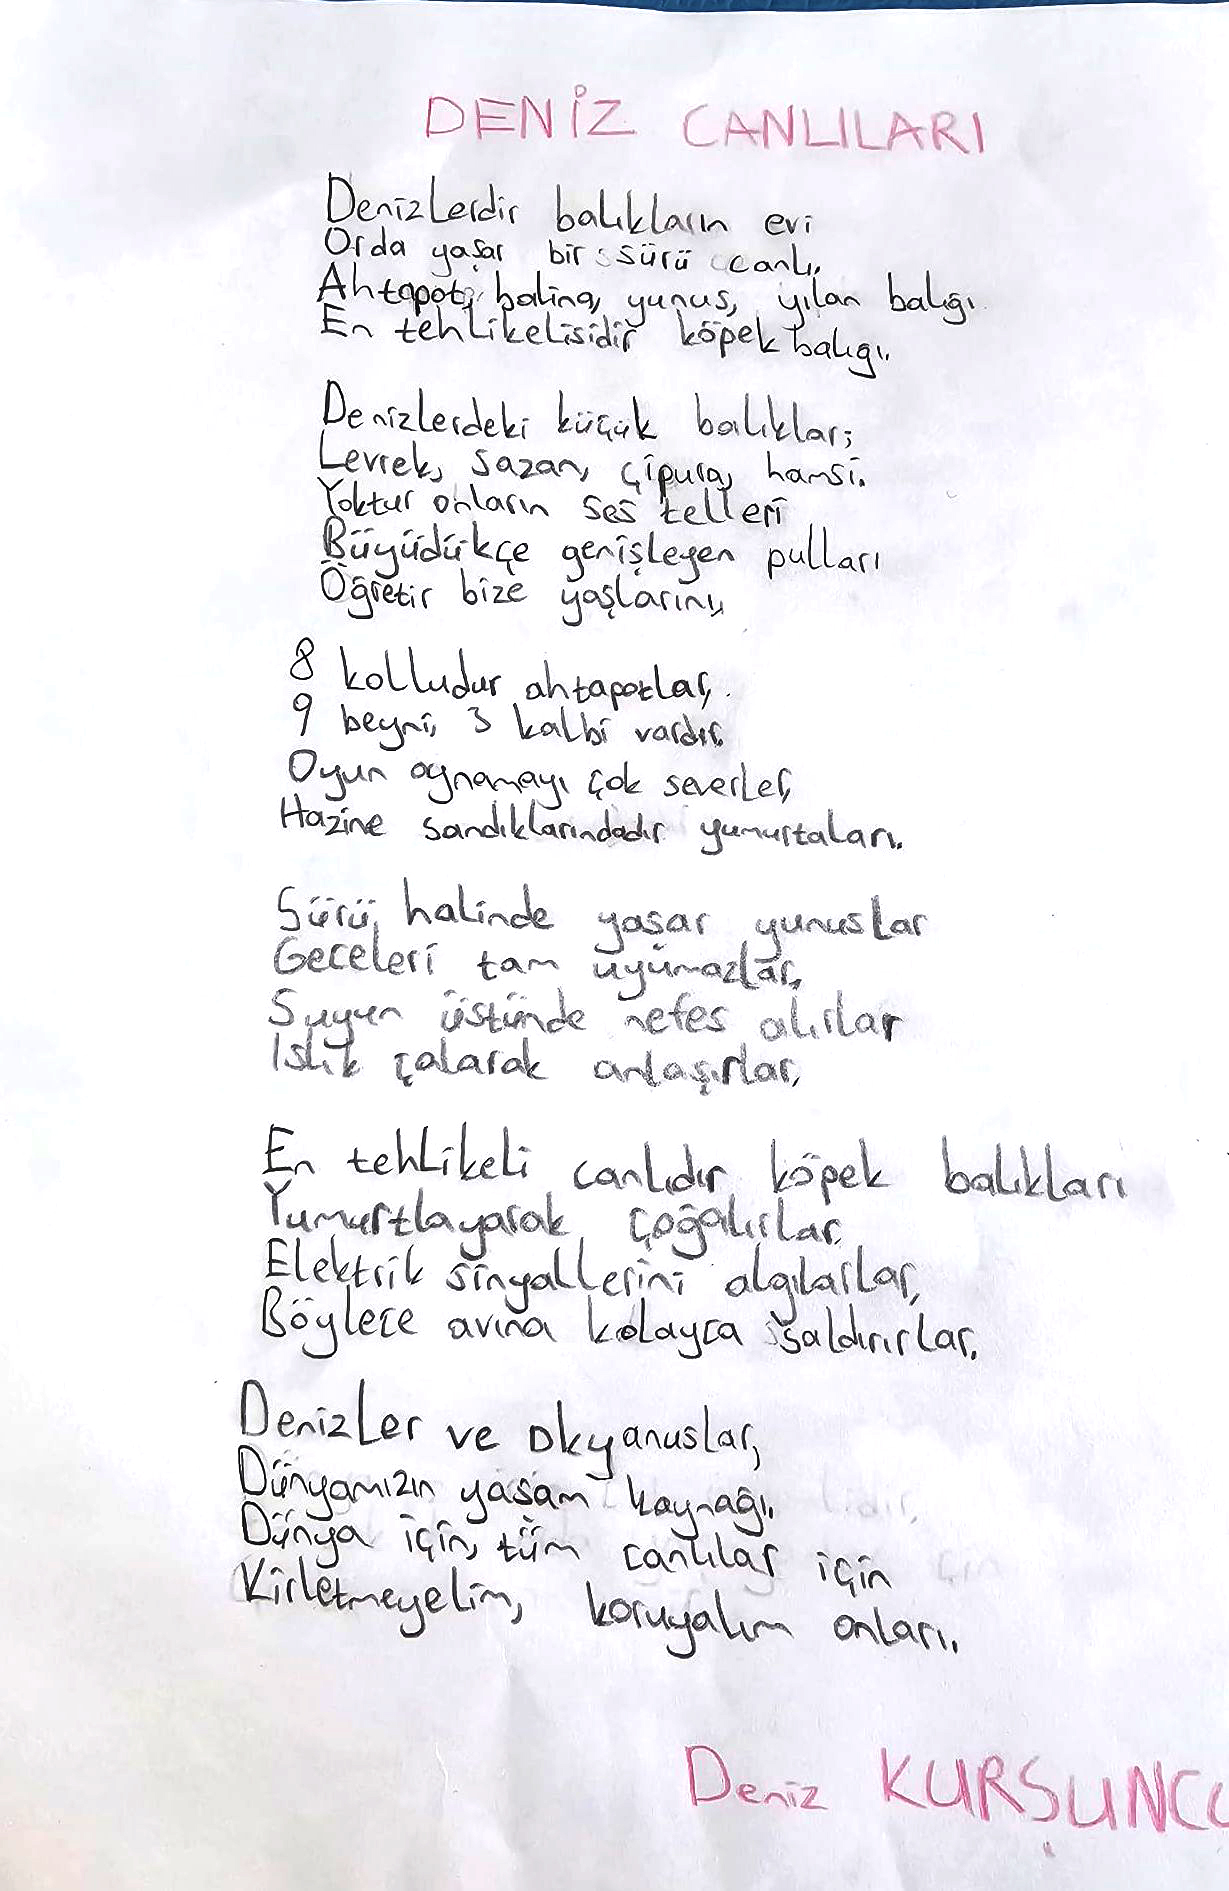 DENİZ CANLILARI
Denizlerdir balıkların evi
Orda yaşar bir sürü canlı.
Ahtapot, balina, yunus, yılan balığı
En tehlikelisidir köpek balığı.
Denizlerdeki küçük balıklar;
Levrek, sazan, çipura, hamsi.
Yoktur onların ses telleri
Büyüdükçe genişleyen pulları
Öğretir bize yaşlarını,
8 kolludur ahtapotlar,
9 beyni, 3 kalbi vardır.
Oyun oynamayı çok severler,
Hazine sandıklarındadır yumurtaları.
Sürü halinde yaşar yunuslar
Geceleri tam uyumazlar,
Suyun üstünde nefes alırlar
Islık çalarak anlaşırlar,
En tehlikeli canlıdır köpek balıkları
Yumurtlayarak çoğalırlar.
Elektrik sinyallerini algılarlar,
Böylece avına kolayca saldırırlar.
Denizler ve okyanuslar,
Dünyamızın yaşam kaynağı.
Dünya için, tüm canlılar için
Kirletmeyelim, koruyalım onları.
Deniz KURŞUNCU